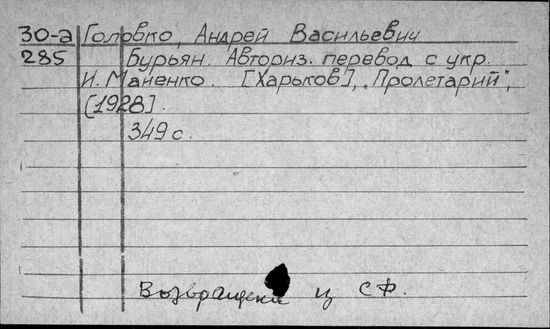 30-а Головко, Андрей Васильевич
285 Бурьян. Авториз. перевод с укр.
И. Маненко. [Харьков], "Пролетарий",
[1928].
349 с.
Возвращена из СФ.